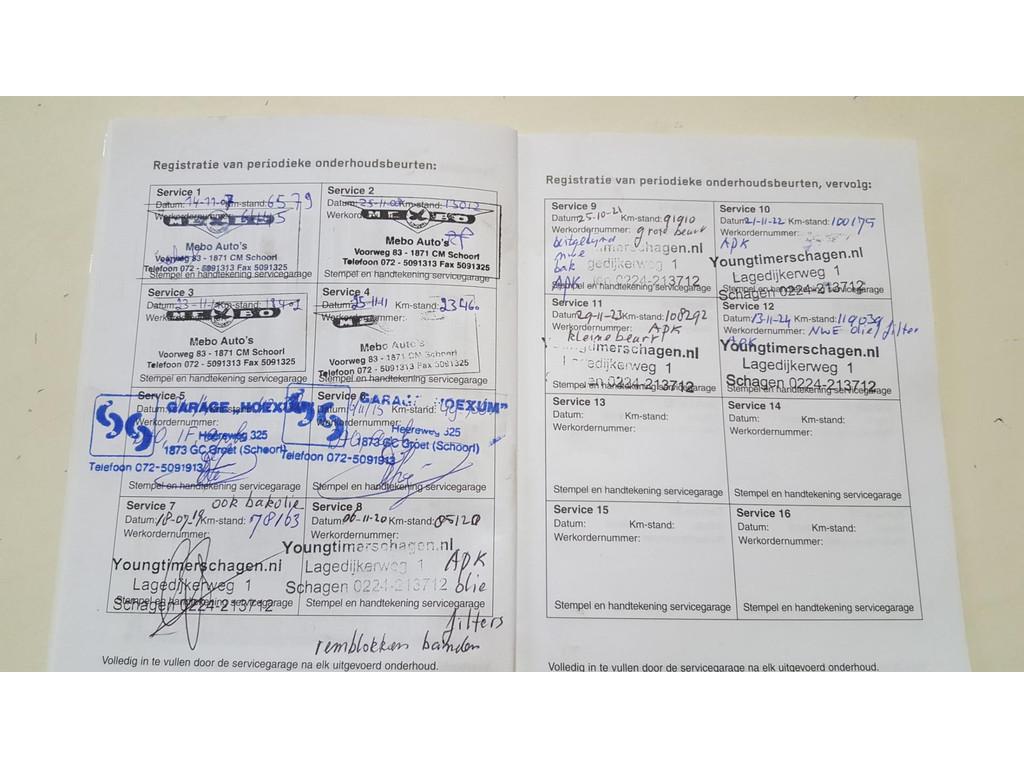 Registratie van periodieke onderhoudsbeurten:
Service 1
Datum: 14-11-07 Km-stand: 6579
Werkordernummer:
MEXBO
Mebo Auto's
Voorweg 83 - 1871 CM Schoorl
Telefoon 072 - 5091313 Fax 5091325
Stempel en handtekening servicegarage
Service 2
Datum: Km-stand: 13012
MEXBO
Mebo Auto's
Voorweg 83 - 1871 CM Schoorl
Telefoon 072 - 5091313 Fax 5091325
Stempel en handtekening servicegarage
Service 3
Datum: Km-stand:
MEXBO
Mebo Auto's
Voorweg 83 - 1871 CM Schoorl
Telefoon 072 - 5091313 Fax 5091325
Stempel en handtekening servicegarage
Service 4
Datum: 25-11-11 Km-stand: 23460
Werkordernummer:
Mebo Auto's
Voorweg 83 - 1871 CM Schoorl
Telefoon 072 - 5091313 Fax 5091325
Stempel en handtekening servicegarage
Service 5
Datum:
GARAGE "HOEXUM"
Heereweg 325
1873 GC Groet (Schoorl)
Telefoon 072-5091913
Stempel en handtekening servicegarage
Service 6
Km-stand:
GARAGE "HOEXUM"
Heereweg 325
1873 GC Groet (Schoorl)
Telefoon 072-5091913
Stempel en handtekening servicegarage
Service 7 ook bakolie
Datum: 18-07-19 Km-stand: 78163
Werkordernummer:
Youngtimerschagen.nl
Lagedijkerweg 1
Schagen 0224-213712
Stempel en handtekening servicegarage
Service 8
Datum: 06-11-20 Km-stand: 85120
Werkordernummer:
Youngtimerschagen.nl
Lagedijkerweg 1 APK
Schagen 0224-213712 olie
Stempel en handtekening servicegarage
filters
remblokken banden
Volledig in te vullen door de servicegarage na elk uitgevoerd onderhoud.
Registratie van periodieke onderhoudsbeurten, vervolg:
Service 9
Datum: 25-10-21 Km-stand: 91910
Werkordernummer: grote beurt
bak
APK
Stempel en handtekening servicegarage
Service 10
Datum: 21-11-22 Km-stand: 100175
Werkordernummer:
APK
Youngtimerschagen.nl
Lagedijkerweg 1
Schagen 0224-213712
Stempel en handtekening servicegarage
Service 11
Datum: 29-11-23 Km-stand: 108292
Werkordernummer: APK
kleine beurt
Youngtimerschagen.nl
Lagedijkerweg 1
Schagen 0224-213712
Stempel en handtekening servicegarage
Service 12
Datum: 13-11-24 Km-stand: 119039
Werkordernummer: NWE olie filter
APK
Youngtimerschagen.nl
Lagedijkerweg 1
Schagen 0224-213712
Stempel en handtekening servicegarage
Service 13
Datum: Km-stand:
Werkordernummer:
Stempel en handtekening servicegarage
Service 14
Datum: Km-stand:
Werkordernummer:
Stempel en handtekening servicegarage
Service 15
Datum: Km-stand:
Werkordernummer:
Stempel en handtekening servicegarage
Service 16
Datum: Km-stand:
Werkordernummer:
Stempel en handtekening servicegarage
Volledig in te vullen door de servicegarage na elk uitgevoerd onderhoud.